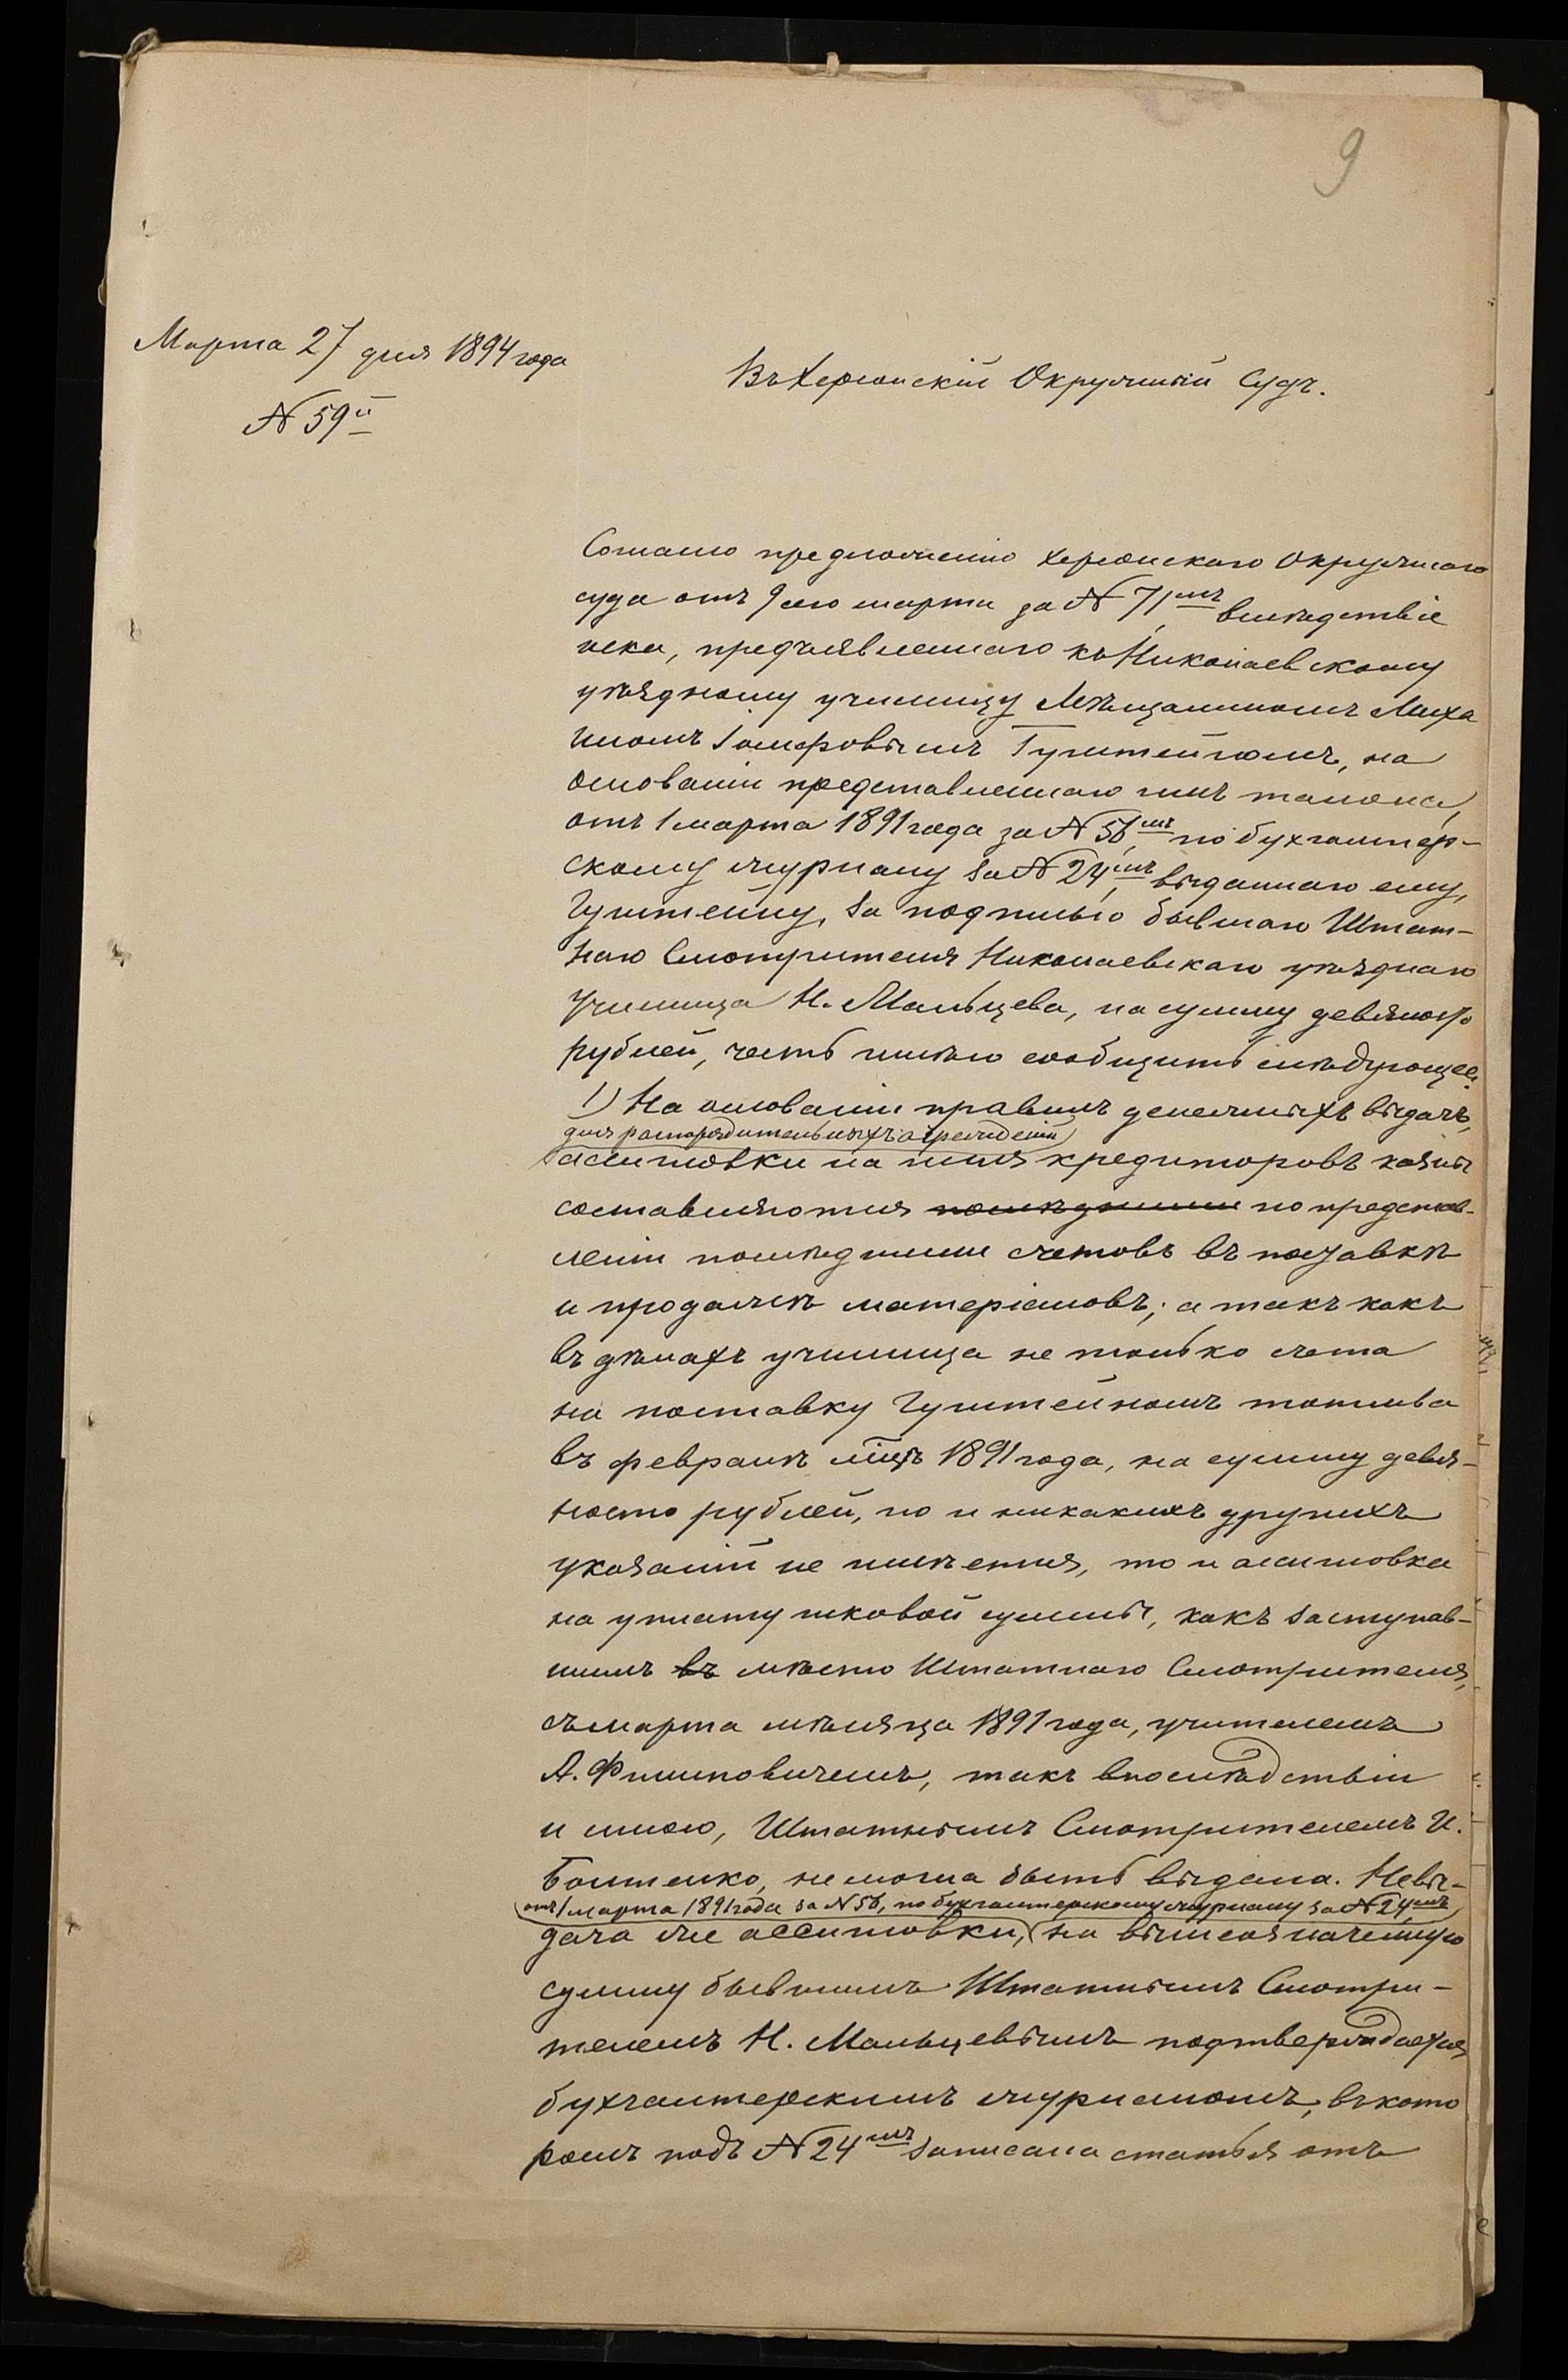 9
Марта 27 дня 1894 года
N 59й
Въ Херсонскій Окружный Судъ.
Согласно предложенію Херсонскаго Окружнаго
суда отъ 9-го марта за N 71мъ вслѣдствіе
иска, предъявленнаго къ Николаевскому
уѣздному училищу Мѣщаниномъ Миха
иломъ Гутштейномъ, на
основаніи представленнаго имъ талона,
отъ 1 марта 1891 года за N 56мъ по бухгалтер-
скому журналу за N 24мъ, выданнаго ему,
Гутштейну, за подписью бывшаго Штат-
наго Смотрителя Николаевскаго уѣзднаго
училища Н. Мальцева, на сумму девяносто
рублей, честь имѣю сообщить слѣдующее:
1) На основаніи правилъ денежныхъ выдачъ,
для распорядительныхъ учрежденій
ассигновки на имя кредиторовъ казны
составляются послѣдними по представ-
леніи послѣдними счетовъ въ поставкѣ
и продажѣ матеріаловъ; а такъ какъ
въ дѣлахъ училища не только счета
на поставку Гутштейномъ топлива
въ февралѣ мцѣ 1891 года, на сумму девя-
носто рублей, но и никакихъ другихъ
указаній не имѣется, то и ассигновка
на уплату исковой суммы, какъ заступав-
шимъ въ мѣсто Штатнаго Смотрителя,
съ марта мѣсяца 1891 года, учителемъ
А. Филиповичемъ, такъ впослѣдствіи
и мною, Штатнымъ Смотрителемъ И.
Болтенко, не могла быть выдана. Невы-
отъ 1 марта 1891 года за N 56, по бухгалтерскому журналу за N 24мъ
дача же ассигновки, на вышеозначенную
сумму бывшимъ Штатнымъ Смотри-
телемъ Н. Мальцевымъ подтверждается
бухгалтерскимъ журналомъ, въ кото
ромъ подъ N 24мъ записана статья отъ